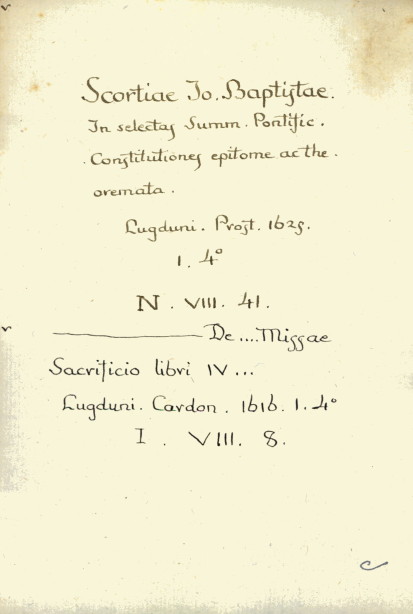 Scortiae Jo. Baptistae.
In selectas Summ. Pontific.
Constitutiones epitome ac the.
oremata.
Lugduni. Prost. 1625.
1. 4°
N. VIII. 41.
De .... Missae
Sacrificio libri IV ...
Lugduni. Cardon. 1616. 1. 4°
I. VIII. 8.